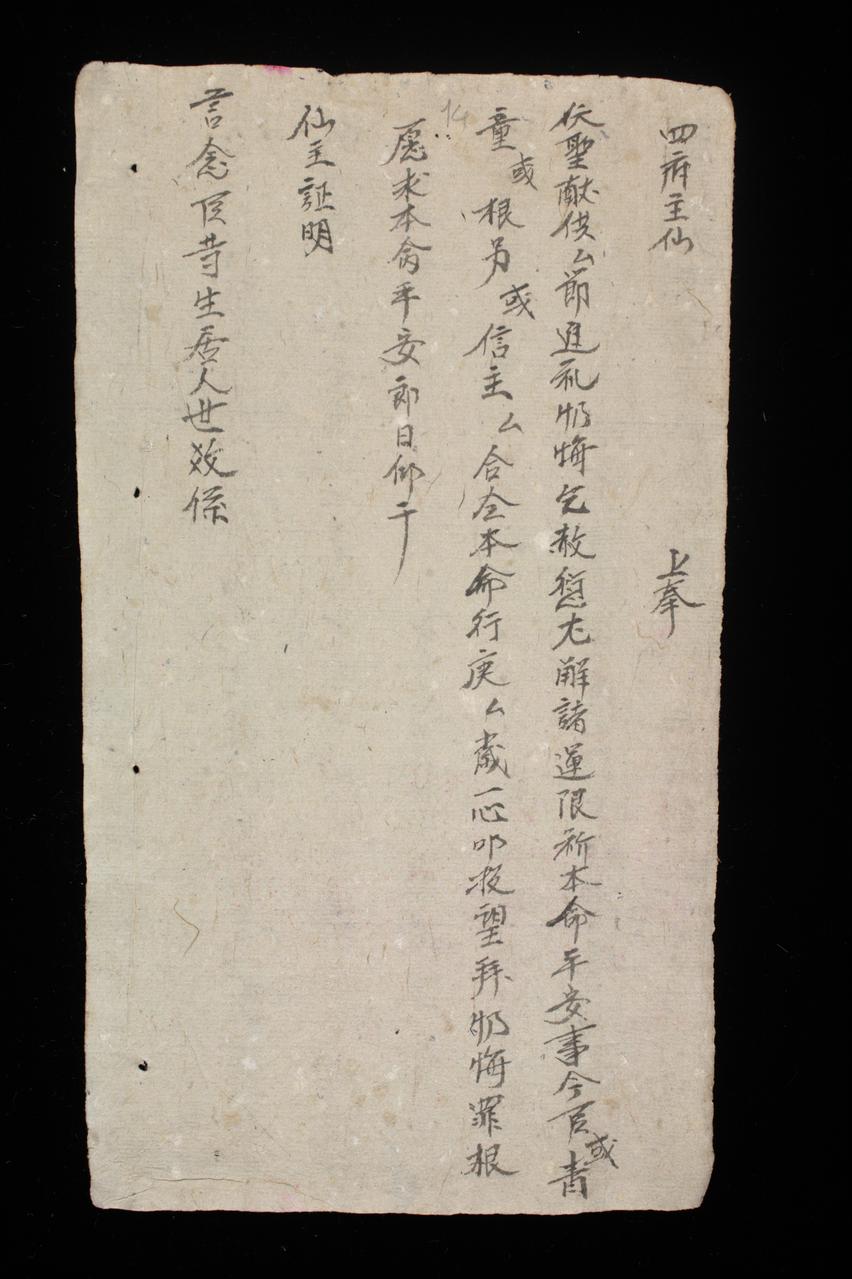 四府主仙 上奉
伏聖献供厶節進礼忏悔乞赦愆尤解諸運限祈本命平安事今臣或青
童或根男或信主厶合仝本命行庚厶歲一心叩投望拜忏悔罪根
愿求本命平安即日仰干
仙主証明
言念臣等生居人世效係
14